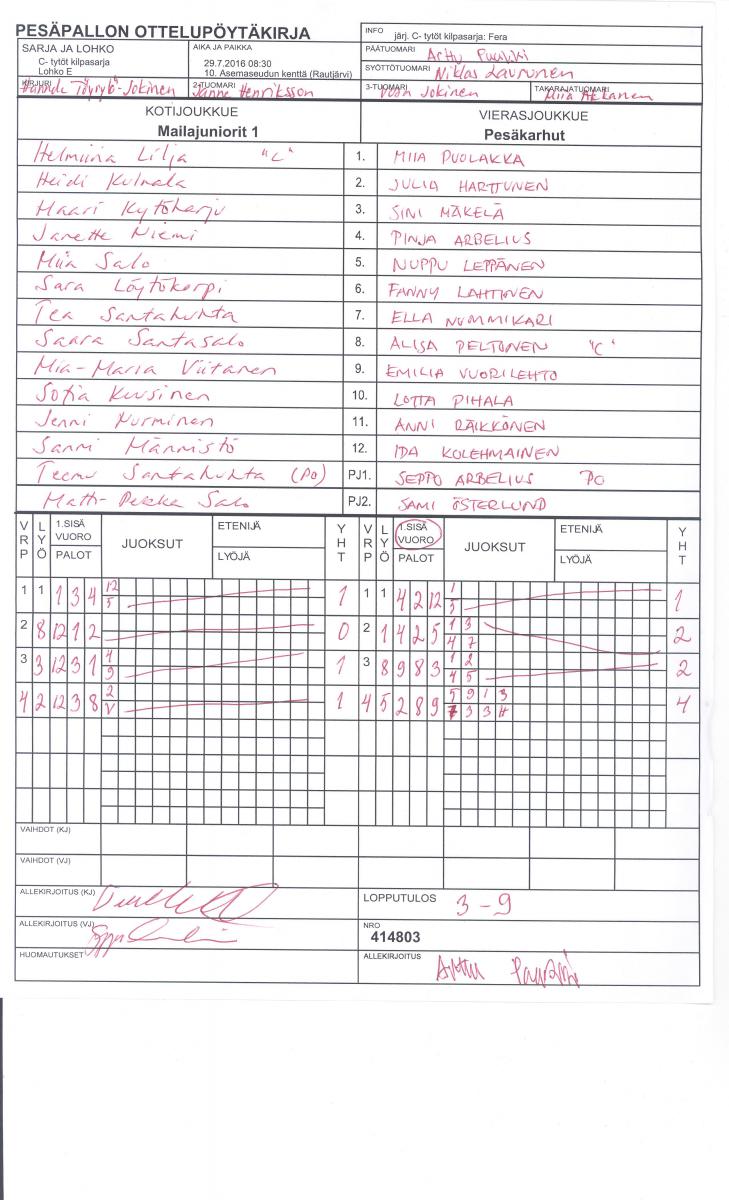 PESÄPALLON OTTELUPÖYTÄKIRJA
INFO järj. C- tytöt kilpasarja: Fera
SARJA JA LOHKO
C- tytöt kilpasarja
Lohko E
AIKA JA PAIKKA
29.7.2016 08:30
10. Asemaseudun kenttä (Rautjärvi)
PÄÄTUOMARI Arttu
SYÖTTÖTUOMARI Niklas
KIRJURI
2-TUOMARI Janne Henriksson
3-TUOMARI Jokinen
TAKARAJATUOMARI Miia
KOTIJOUKKUE
Mailajuniorit 1
VIERASJOUKKUE
Pesäkarhut
Helmiina Lilja "C" 1. MIIA PUOLAKKA
Heidi Kulmala 2. JULIA HARTTUNEN
Maari Kytöharju 3. SINI MÄKELÄ
Janette Niemi 4. PINJA ARBELIUS
Miia Salo 5. NUPPU LEPPÄNEN
Sara Löytökorpi 6. FANNY LAHTINEN
Tea Santahuhta 7. ELLA NUMMIKARI
Saara Santasalo 8. ALISA PELTONEN "C"
Mia-Maria Viitanen 9. EMILIA VUORILEHTO
Sofia Kuusinen 10. LOTTA PIHALA
Jenni Nurminen 11. ANNI RÄIKKÖNEN
Sanni Männistö 12. IDA KOLEHMAINEN
Teemu Santahuhta (PO) PJ1. SEPPO ARBELIUS PO
Matti-Pekka Salo PJ2. SAMI ÖSTERLUND
VRP LYÖ 1.SISÄ VUORO PALOT JUOKSUT ETENIJÄ LYÖJÄ YHT VRP LYÖ 1.SISÄ VUORO PALOT JUOKSUT ETENIJÄ LYÖJÄ YHT
1 1 1 3 4 12 1 1 1 4 2 12 1 1
5 5
2 8 12 1 2 0 2 1 4 2 5 1 3 2
4 7
3 3 12 3 1 4 1 3 8 9 8 3 1 2 2
9 4 5
4 2 12 3 8 2 1 4 5 2 8 9 5 9 1 3 4
V 7 3 3 H
VAIHDOT (KJ)
VAIHDOT (VJ)
ALLEKIRJOITUS (KJ)
LOPPUTULOS 3-9
ALLEKIRJOITUS (VJ)
NRO
414803
HUOMAUTUKSET
ALLEKIRJOITUS Arttu